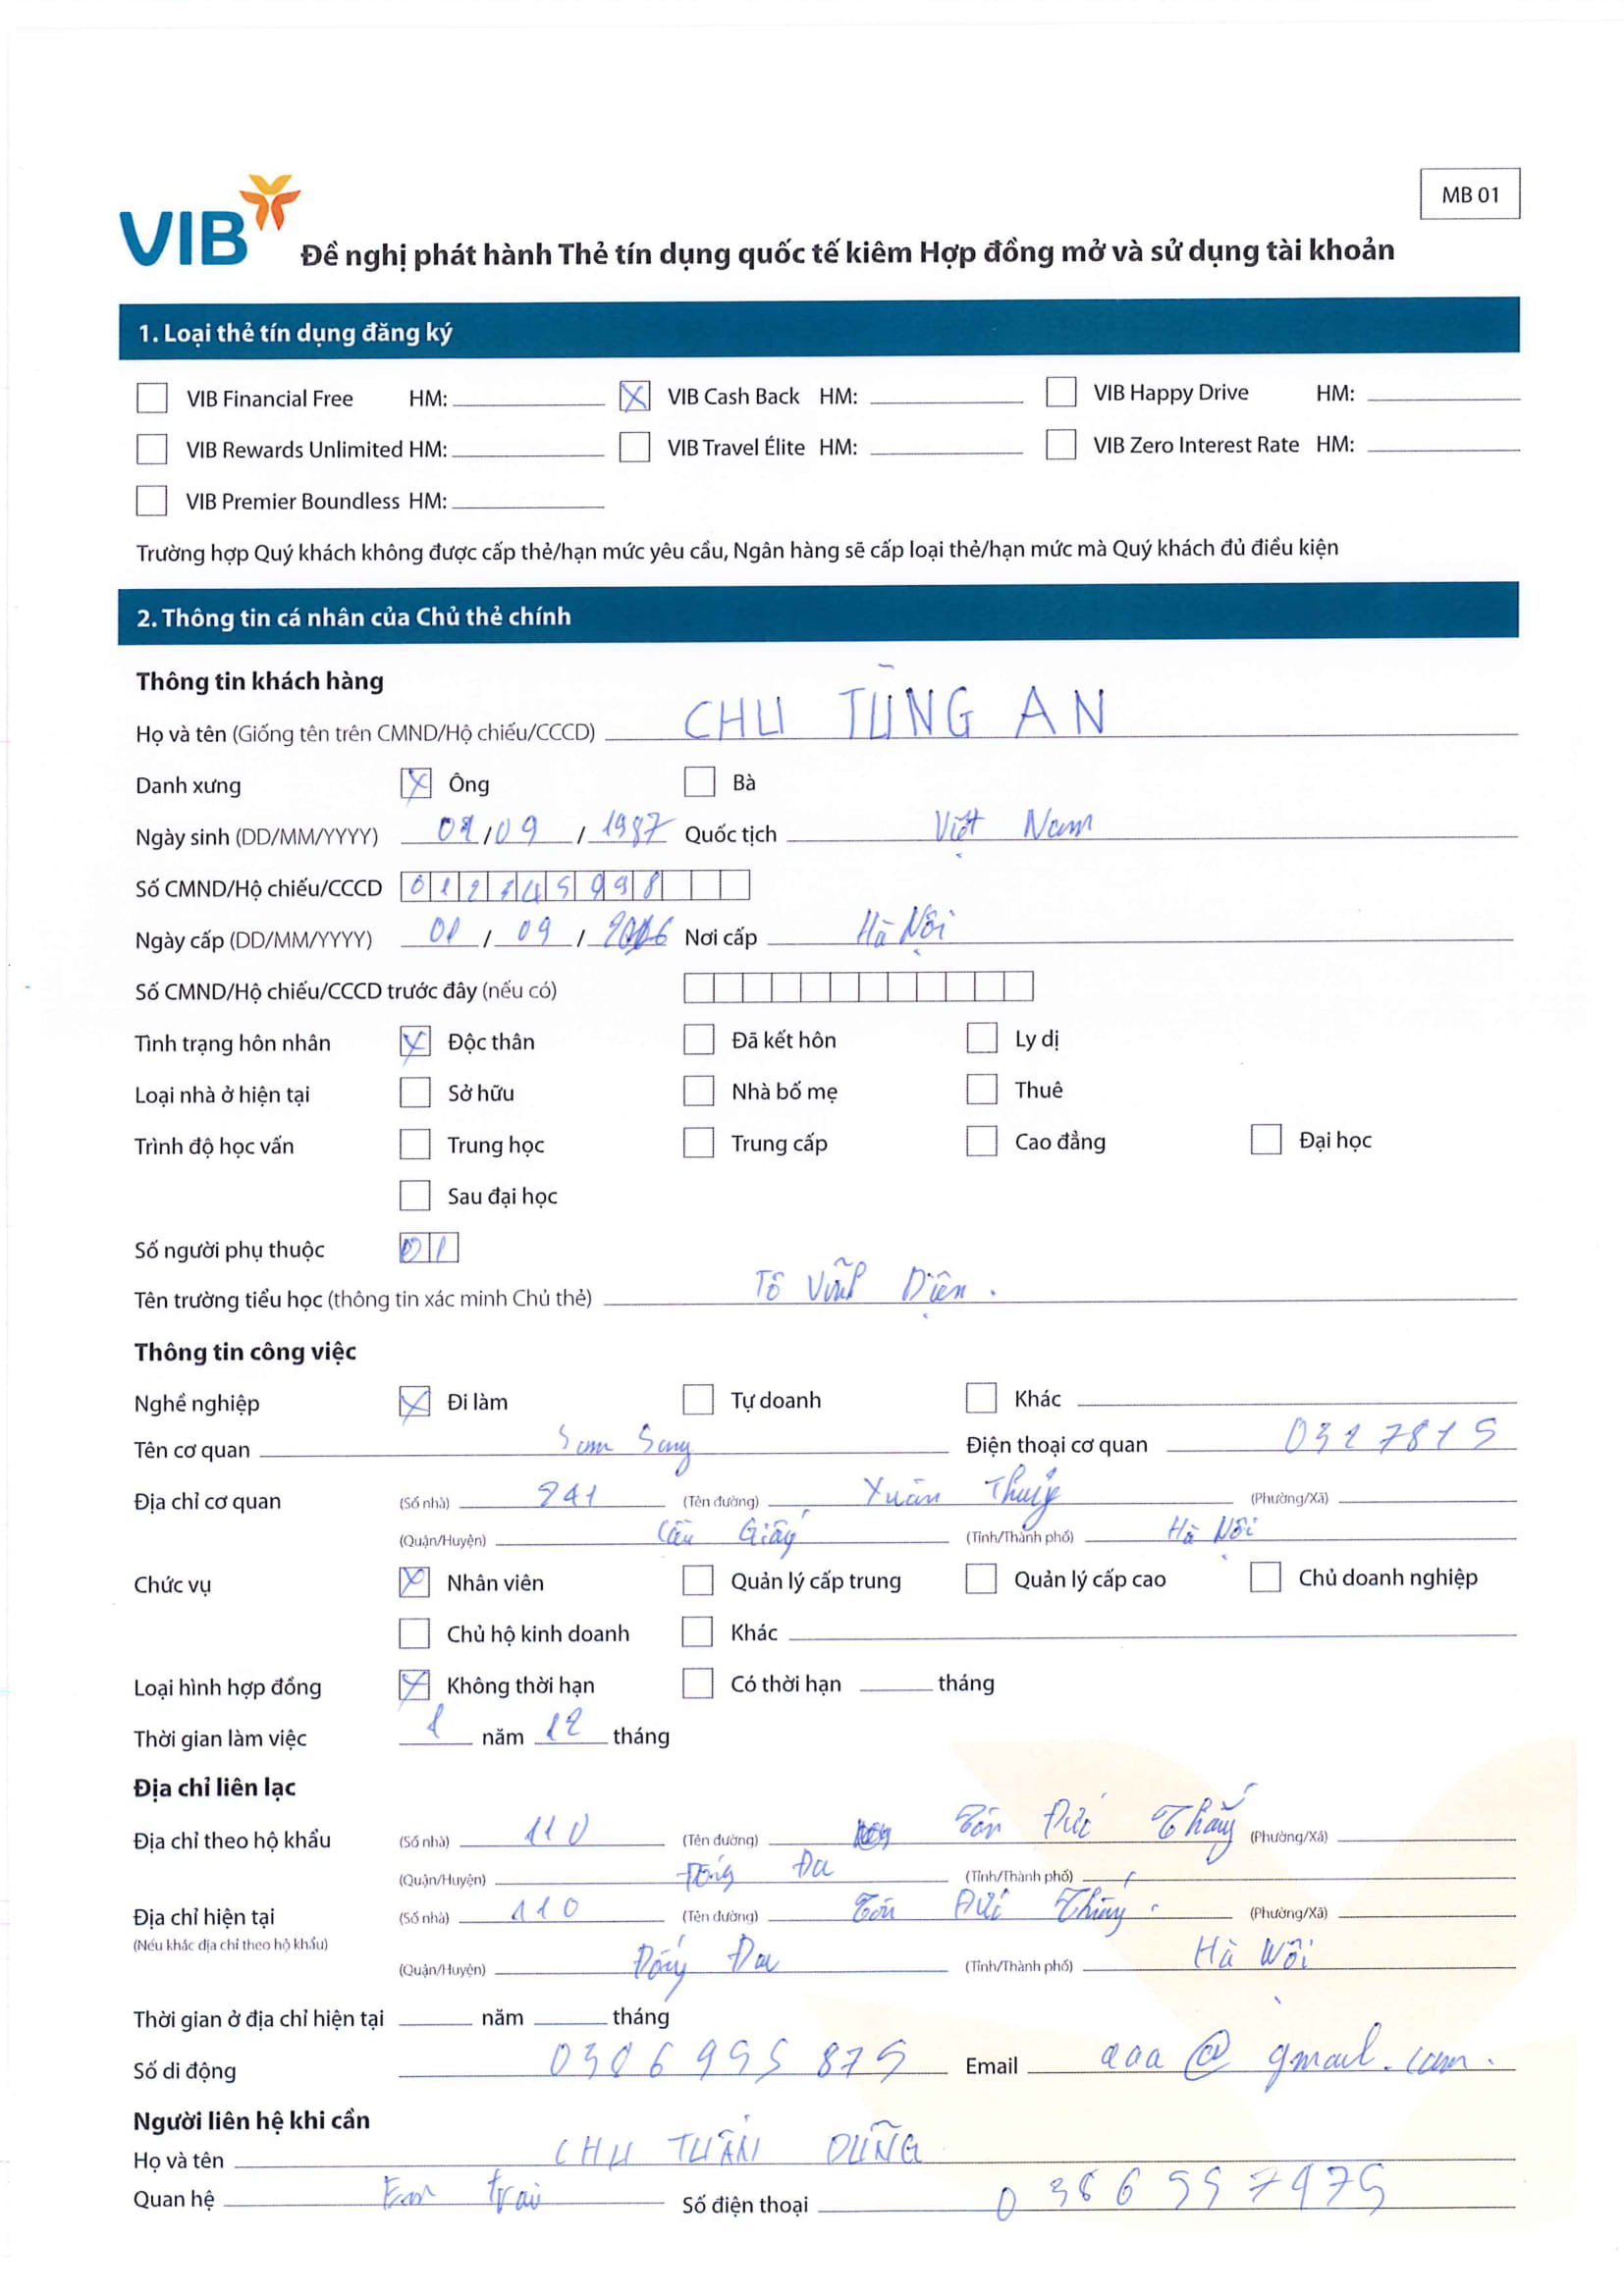 MB 01
VIB
Đề nghị phát hành Thẻ tín dụng quốc tế kiêm Hợp đồng mở và sử dụng tài khoản
1. Loại thẻ tín dụng đăng ký
VIB Financial Free HM: VIB Cash Back HM: VIB Happy Drive HM:
VIB Rewards Unlimited HM: VIB Travel Élite HM: VIB Zero Interest Rate HM:
VIB Premier Boundless HM:
Trường hợp Quý khách không được cấp thẻ/hạn mức yêu cầu, Ngân hàng sẽ cấp loại thẻ/hạn mức mà Quý khách đủ điều kiện
2. Thông tin cá nhân của Chủ thẻ chính
Thông tin khách hàng
Họ và tên (Giống tên trên CMND/Hộ chiếu/CCCD) CHU TÙNG AN
Danh xưng Ông Bà
Ngày sinh (DD/MM/YYYY) / 09 / 1987 Quốc tịch Việt Nam
Số CMND/Hộ chiếu/CCCD
Ngày cấp (DD/MM/YYYY) 01 / 09 / Nơi cấp Hà Nội
Số CMND/Hộ chiếu/CCCD trước đây (nếu có)
Tình trạng hôn nhân Độc thân Đã kết hôn Ly dị
Loại nhà ở hiện tại Sở hữu Nhà bố mẹ Thuê
Trình độ học vấn Trung học Trung cấp Cao đẳng Đại học
Sau đại học
Số người phụ thuộc 01
Tên trường tiểu học (thông tin xác minh Chủ thẻ) Tô Vĩnh Diện .
Thông tin công việc
Nghề nghiệp Đi làm Tự doanh Khác
Tên cơ quan Sam Sung Điện thoại cơ quan
Địa chỉ cơ quan (Số nhà) 241 (Tên đường) Xuân Thuỷ (Phường/Xã)
(Quận/Huyện) Cầu Giấy (Tỉnh/Thành phố) Hà Nội
Chức vụ Nhân viên Quản lý cấp trung Quản lý cấp cao Chủ doanh nghiệp
Chủ hộ kinh doanh Khác
Loại hình hợp đồng Không thời hạn Có thời hạn tháng
Thời gian làm việc 1 năm 12 tháng
Địa chỉ liên lạc
Địa chỉ theo hộ khẩu (Số nhà) 110 (Tên đường) Tôn Đức Thắng (Phường/Xã)
(Quận/Huyện) Đống Đa (Tỉnh/Thành phố)
Địa chỉ hiện tại (Số nhà) 110 (Tên đường) Tôn Đức Thắng (Phường/Xã)
(Nếu khác địa chỉ theo hộ khẩu)
(Quận/Huyện) Đống Đa (Tỉnh/Thành phố) Hà Nội
Thời gian ở địa chỉ hiện tại năm tháng
Số di động Email aaa@gmail.com.
Người liên hệ khi cần
Họ và tên CHU TUẤN DŨNG
Quan hệ Em trai Số điện thoại